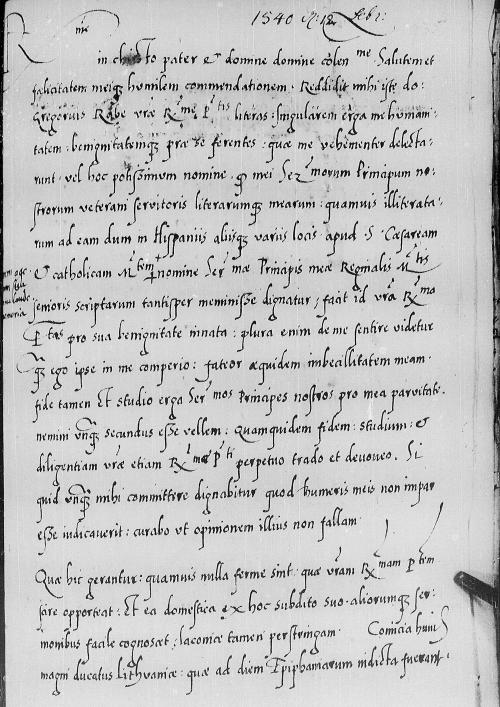 1540 A: 12 Febr:
R me
in christo pater & domine domine colen me. Salutem et
falicitatem meiq3 humilem commendationem. Reddidit mihi iste do:
Gregorius Rabe vrae R me P tis literas. Singularem erga me humani-
tatem: benignitatemq3 prae se ferentes: quae me vehementer delecta-
runt, vel hoc potissimum nomine, q mei Ser morum Principum no-
strorum veterani servitoris literarumq3 mearum: quamuis illiterata-
rum ad eam dum in Hispaniis aliisq3 variis locis apud. S. Caesaream
& catholicam M tem nomine Ser mae Principis meae Reginalis M tis
senioris scriptarum tantisper meminisse dignatur, facit id vra R mo
P tas pro sua benignitate innata: plura enim de me sentire videtur
q3 ego ipse in me comperio: fateor aequidem imbecillitatem meam.
fide tamen Et studio erga Ser mos Principes nostros pro mea parvitate.
nemini vnq3 secundus esse vellem: Quamquidem fidem: studium: &
diligentiam vrae etiam R mae P ti perpetuo trado et devoveo. Si
quid vnq3 mihi committere dignabitur quod humeris meis non impar
esse iudicauerit: curabo vt opinionem illius non fallam.
Quae hic gerantur: quamuis nulla ferme sint. quae vram R mam P tem
scire opporteat: Et ea domestica ex hoc subdito suo. aliorumq3 ser-
monibus facile cognoscet, laconice tamen perstringam. Comicia huius
magni ducatus Lithvaniae: quae ad diem Epiphaniarum indicta fuerant.